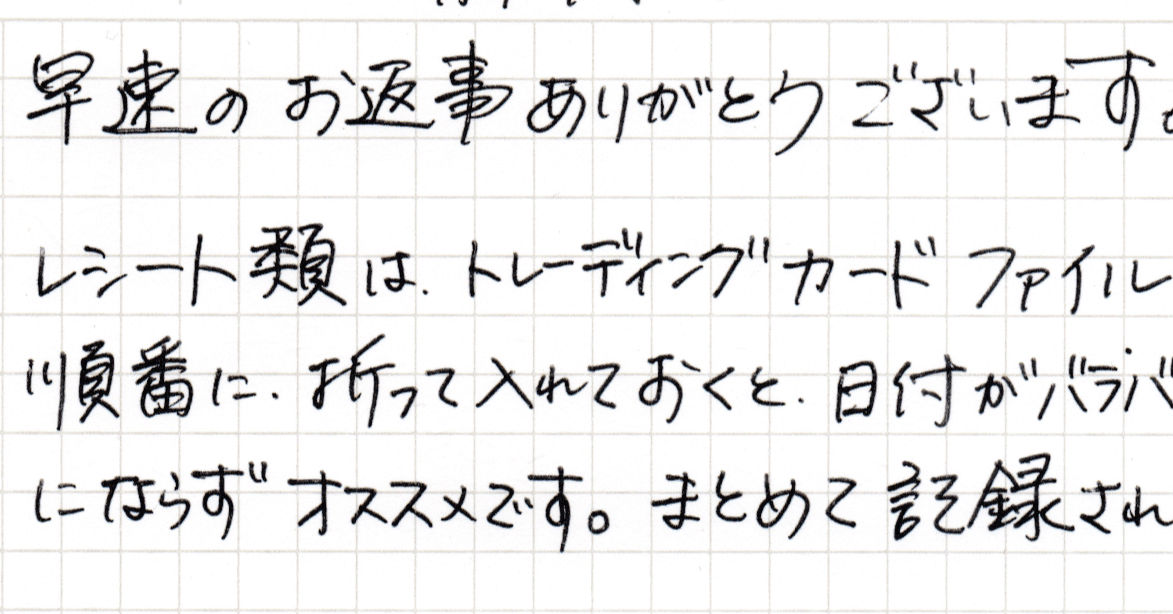 早速のお返事ありがとうございます。
レシート類は、トレーディングカードファイル
順番に、折って入れておくと、日付がバラバ
にならずオススメです。まとめて記録され